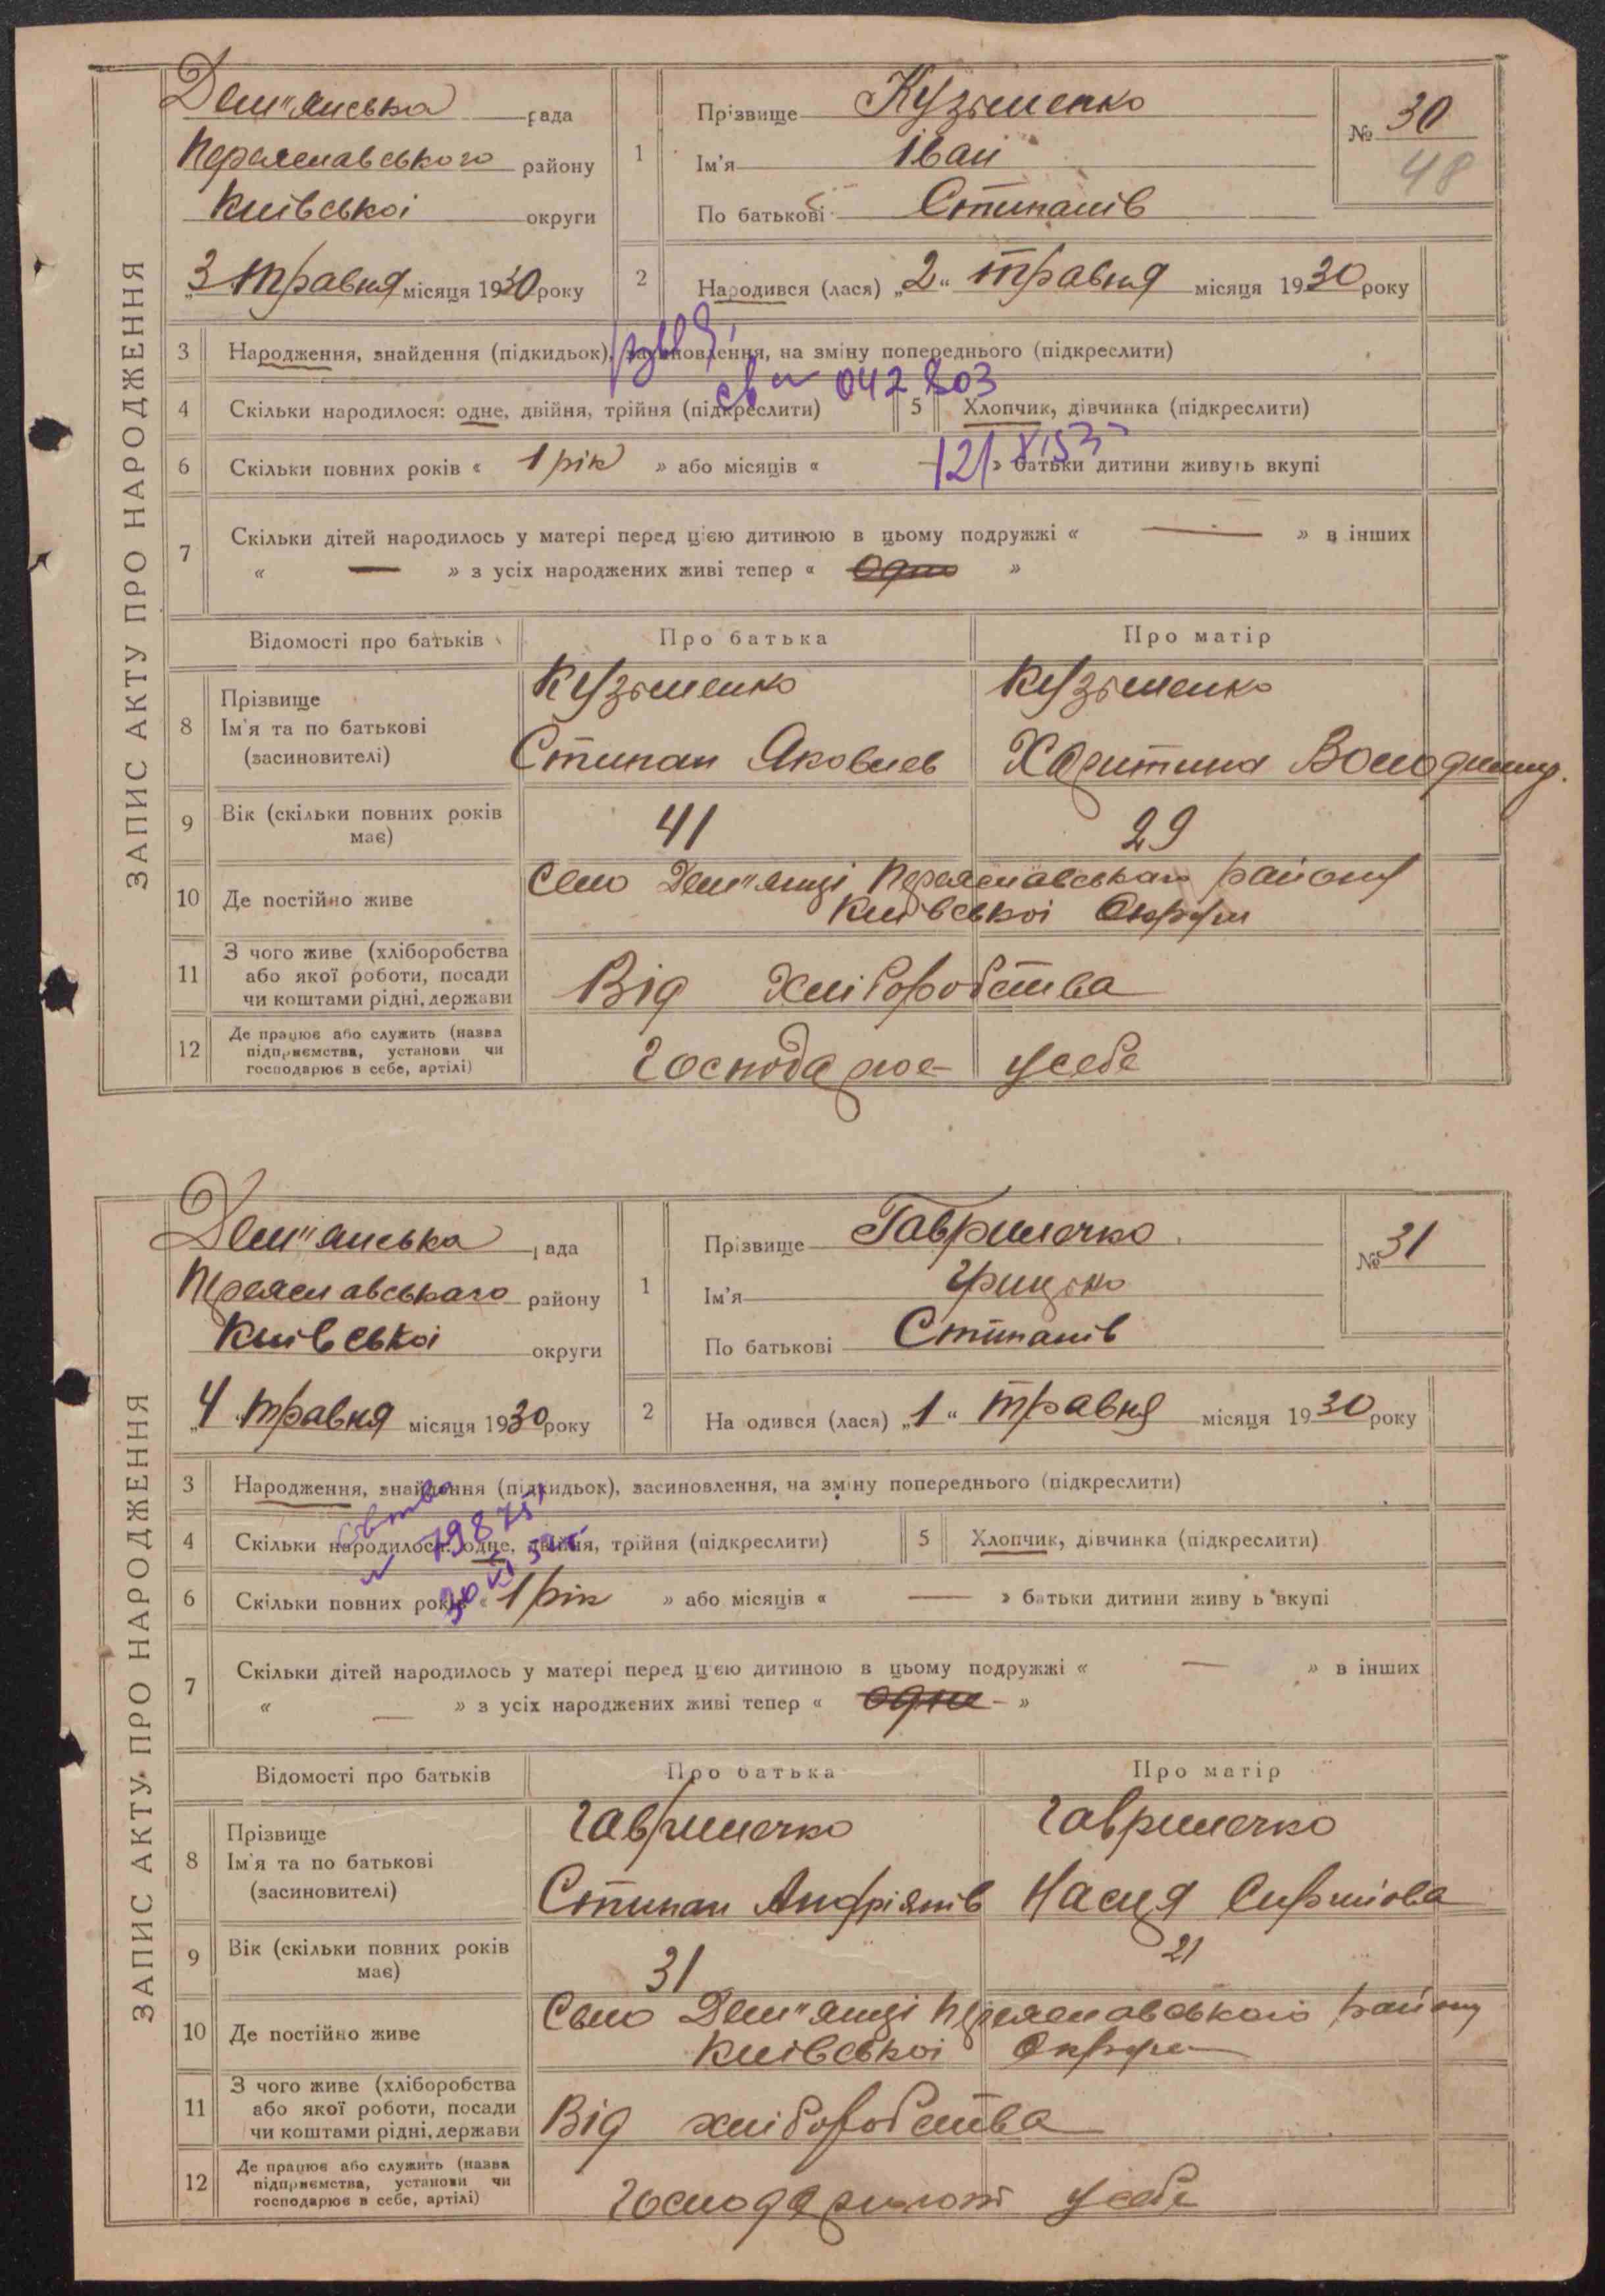 ЗАПИС АКТУ ПРО НАРОДЖЕННЯ
Дем"янська рада
Переяславського району
Київської округи
„3 травня місяця 1930 року
1
Прізвище Кузьменко
Ім'я Іван
По батькові Стипанів
№ 30
48
2
Народився (лася) „2“ травня місяця 1930 року
3 Народження, знайдення (підкидьок), засиновлення, на зміну попереднього (підкреслити)
св № 042803
4 Скільки народилося: одне, двійня, трійня (підкреслити)
5 Хлопчик, дівчинка (підкреслити)
6 Скільки повних років « 1 рік » або місяців « » батьки дитини живуть вкупі
7 Скільки дітей народилось у матері перед цією дитиною в цьому подружжі « — » в інших
« — » з усіх народжених живі тепер « одно »
Відомості про батьків
Про батька
Про матір
8 Прізвище
Ім'я та по батькові
(засиновителі)
Кузьменко
Стипан Яковлев
Кузьменко
Харитина Володимир.
9 Вік (скільки повних років
має)
41
29
10 Де постійно живе
Село Дем"янці Переяславськаго району
Київської Округи
11 З чого живе (хліборобства
або якої роботи, посади
чи коштами рідні, держави
Від Хліборобства
12 Де працює або служить (назва
підприємства, установи чи
господарює в себе, артілі)
Господарює усебе
ЗАПИС АКТУ ПРО НАРОДЖЕННЯ
Дем"янська рада
Переяславськаго району
Київської округи
„4 травня місяця 1930 року
1
Прізвище Гаврилечко
Ім'я Грицько
По батькові Стипанів
№ 31
2
На одився (лася) „1“ травня місяця 1930 року
3 Народження, знайдення (підкидьок), засиновлення, на зміну попереднього (підкреслити)
4 Скільки народилося: одне, двійня, трійня (підкреслити)
5 Хлопчик, дівчинка (підкреслити)
6 Скільки повних років « 1 рік » або місяців « — » батьки дитини живу ь вкупі
7 Скільки дітей народилось у матері перед цією дитиною в цьому подружжі « — » в інших
« — » з усіх народжених живі тепер « одна »
Відомості про батьків
Про батька
Про матір
8 Прізвище
Ім'я та по батькові
(засиновителі)
Гаврилечко
Стипан Андріянів
Гаврилечко
Насця
9 Вік (скільки повних років
має)
31
21
10 Де постійно живе
Село Дем"янці Переяславськаго району
Київської Округи
11 З чого живе (хліборобства
або якої роботи, посади
чи коштами рідні, держави
Від хліборобства
12 Де працює або служить (назва
підприємства, установи чи
господарює в себе, артілі)
усебе